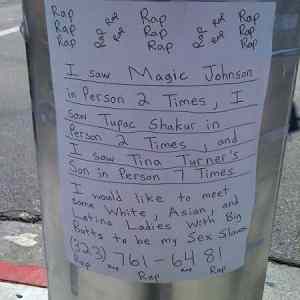 Rap Rap Rap Rap Rap
Rap Rap Rap Rap Rap
Rap Rap Rap Rap Rap
I saw Magic Johnson
in Person 2 Times, I
saw Tupac Shakur in
Person 2 Times, and
I saw Tina Turner's
Son in Person 7 Times
I would like to meet
some White, Asian, and
Latino Ladies With Big
Butts to be my Sex Slaves
(323) 761-6481
Rap Rap Rap Rap Rap